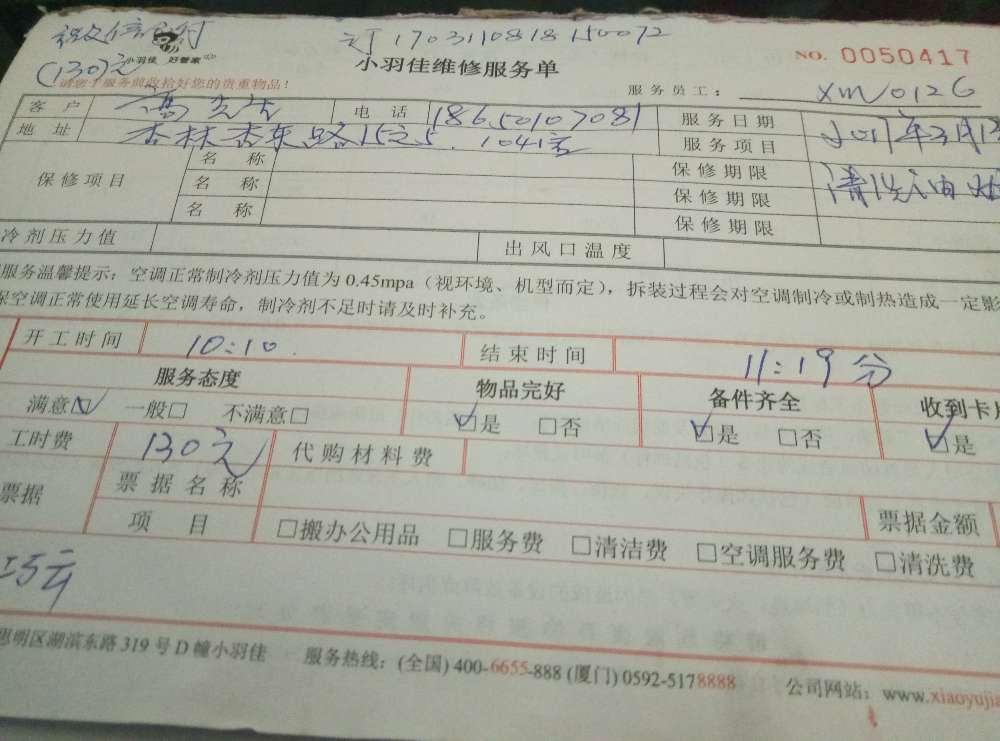 微信支付
订1703110818150072
小羽佳 好管家
(130)元
小羽佳维修服务单
NO. 0050417
请您于服务前收拾好您的贵重物品!
服务员工: XM0126
客户 冯先生 电话 18650107081 服务日期 2017年3月13
地址 杏林杏东路15之5. 1041室 服务项目 清洗油烟
保修项目 名称 保修期限
名称 保修期限
名称 保修期限
冷剂压力值 出风口温度
服务温馨提示: 空调正常制冷剂压力值为 0.45mpa (视环境、机型而定), 拆装过程会对空调制冷或制热造成一定影
保空调正常使用延长空调寿命, 制冷剂不足时请及时补充。
开工时间 10:10. 结束时间 11:19分
服务态度 物品完好 备件齐全 收到卡片
满意☑ 一般□ 不满意□ ☑是 □否 ☑是 □否 ☑是
工时费 130元 代购材料费
票据 票据名称 票据金额
项目 □搬办公用品 □服务费 □清洁费 □空调服务费 □清洗费
巧云
思明区湖滨东路 319 号 D 幢小羽佳 服务热线: (全国) 400-6655-888 (厦门) 0592-5178888 公司网站: www.xiaoyujia